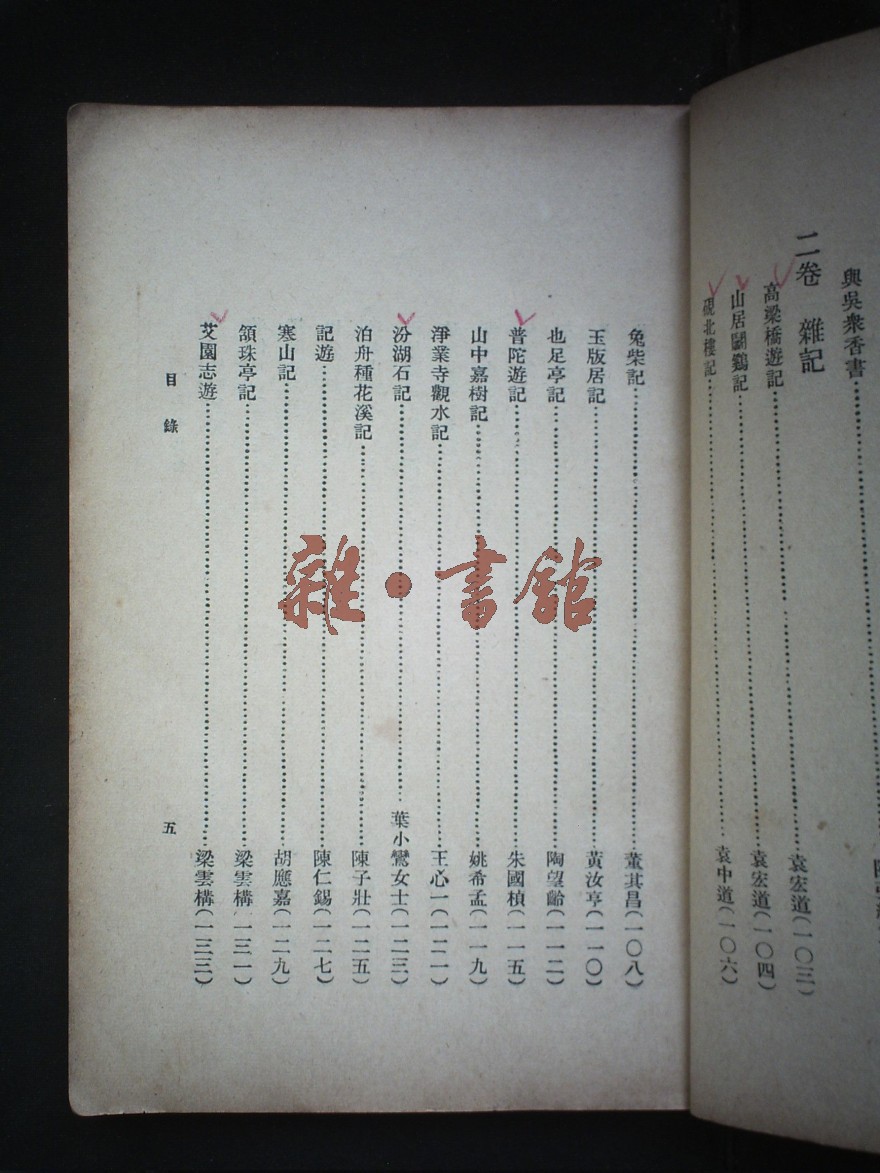 與吳衆香書
二卷 雜記
高梁橋遊記 袁宏道(一〇三)
山居鬭鷄記 袁宏道(一〇四)
硯北樓記 袁中道(一〇六)
兔柴記 董其昌(一〇八)
玉版居記 黃汝亨(一一〇)
也足亭記 陶望齡(一一二)
普陀遊記 朱國楨(一一五)
山中嘉樹記 姚希孟(一一九)
淨業寺觀水記 王心一(一二一)
汾湖石記 葉小鸞女士(一二三)
泊舟種花溪記 陳子壯(一二五)
記遊 陳仁錫(一二七)
寒山記 胡應嘉(一二九)
頷珠亭記 梁雲構(一三一)
艾園志遊 梁雲構(一三三)
目錄
五
雜·書館